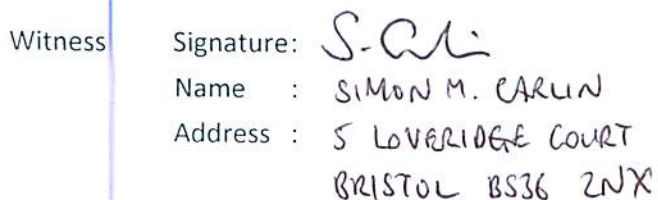 Witness Signature: S. Carlin
Name : SIMON M. CARLIN
Address : 5 LOVERIDGE COURT
BRISTOL BS36 2NX